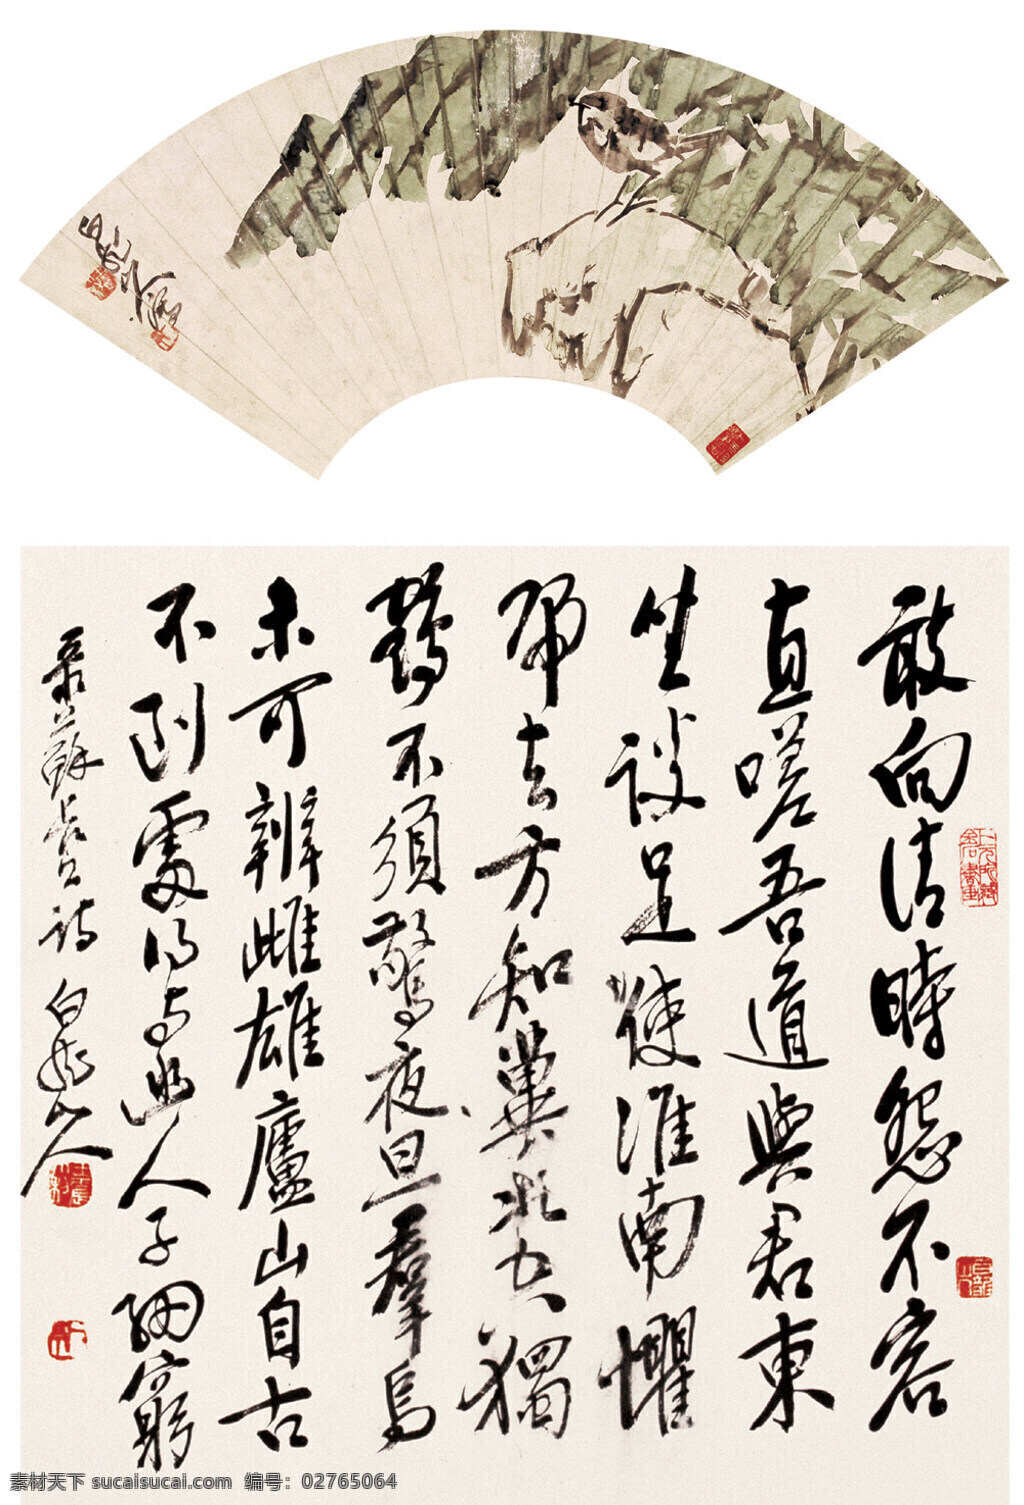 敢向清時怨不容
直嗟吾道與君東
坐談足使淮南懼
歸去方知冀北空獨
鶴不須驚夜旦羣烏
未可辨雌雄廬山自古
不到處得与幽人子細窮
录蘇長公詩 白龍山人
素材天下 sucaisucai.com 编号：02765064